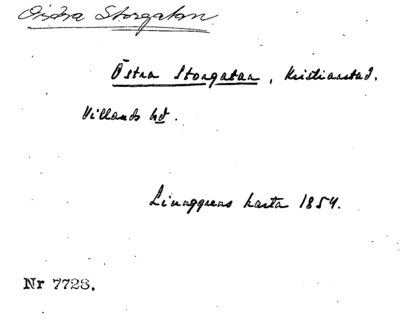 Östra Storgatan
Östra Storgatan, Kristianstad.
Villands hd.
Ljunggrens karta 1854.
Nr 7728.